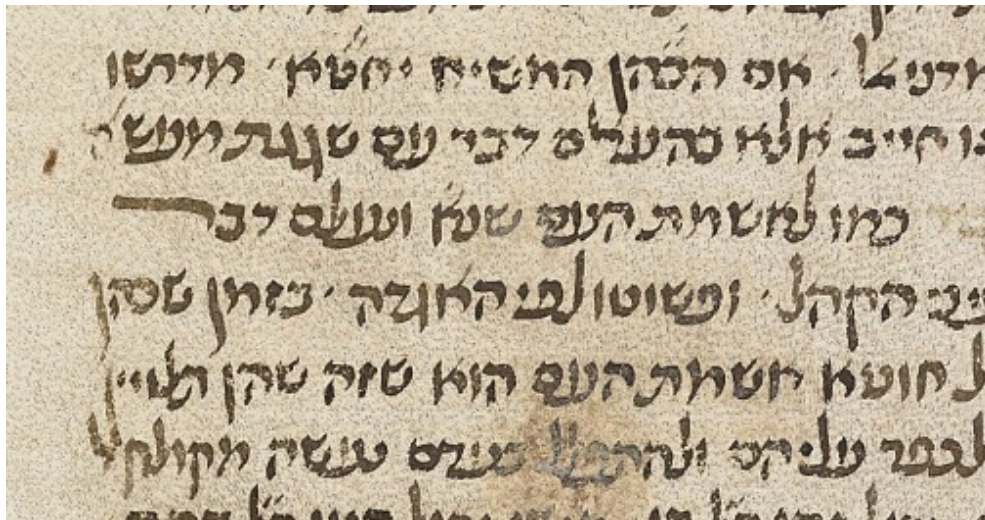 אם הכהן המשיח יחטא · מדרשו
חייב אלא בהעלם דבר עם שגגת מעש'ה
כמו לאשמת העם שנ'א ונעלם דבר
הקהל · ופשוטו לפי האגדה · בזמן שכהן
חוטא אשמת העם הוא שזה שהן תלויין
לכפר עליהם ולהתפלל בעדם שנעשה מקולקל